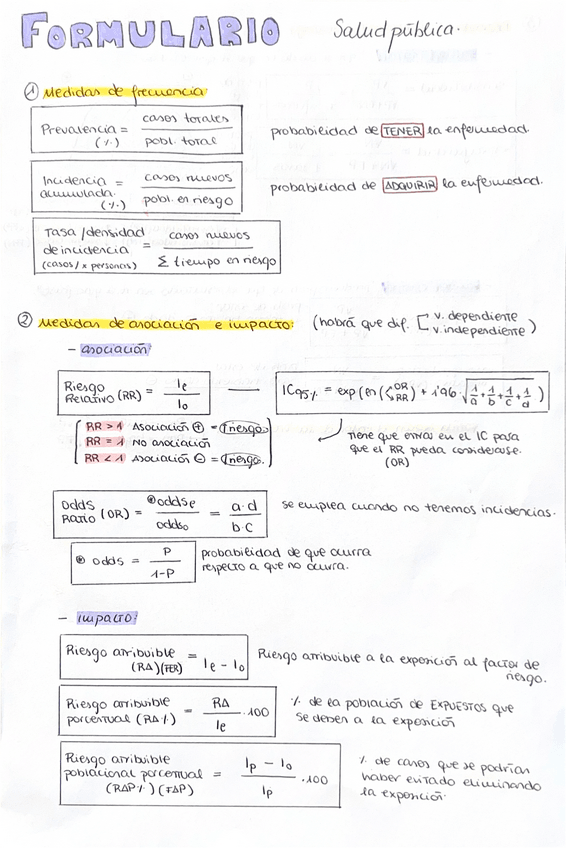 FORMULARIO Salud pública.
① Medidas de frecuencia:
Prevalencia = casos totales / pobl. total
(%)
probabilidad de TENER la enfermedad.
Incidencia acumulada = casos nuevos / pobl. en riesgo
(%)
probabilidad de ADQUIRIR la enfermedad.
Tasa/densidad de incidencia = casos nuevos / Σ tiempo en riesgo
(casos/x personas)
② Medidas de asociación e impacto: (habrá que dif. [ v. dependiente
v. independiente )
- asociación:
Riesgo Relativo (RR) = Ie / Io
IC95% = exp(ln(OR RR) ± 1'96 · √1/a + 1/b + 1/c + 1/d)
RR > 1 Asociación ⊕ = ↑riesgo
RR = 1 NO asociación
RR < 1 Asociación ⊖ = riesgo.
tiene que entrar en el IC para
que el RR pueda considerarse.
(OR)
Odds Ratio (OR) = ⊛oddse / oddso = a·d / b·c
se emplea cuando no tenemos incidencias.
⊛ odds = P / 1-P
probabilidad de que ocurra
respecto a que no ocurra.
- impacto:
Riesgo atribuible (RA)(FER) = Ie - Io
Riesgo atribuible a la exposición al factor de
riesgo.
Riesgo atribuible porcentual (RA%) = RA / Ie · 100
% de la población de EXPUESTOS que
se deben a la exposición
Riesgo atribuible poblacional porcentual = Ip - Io / Ip · 100
(RAP%)(FAP)
% de casos que se podrían
haber evitado eliminando
la exposición.